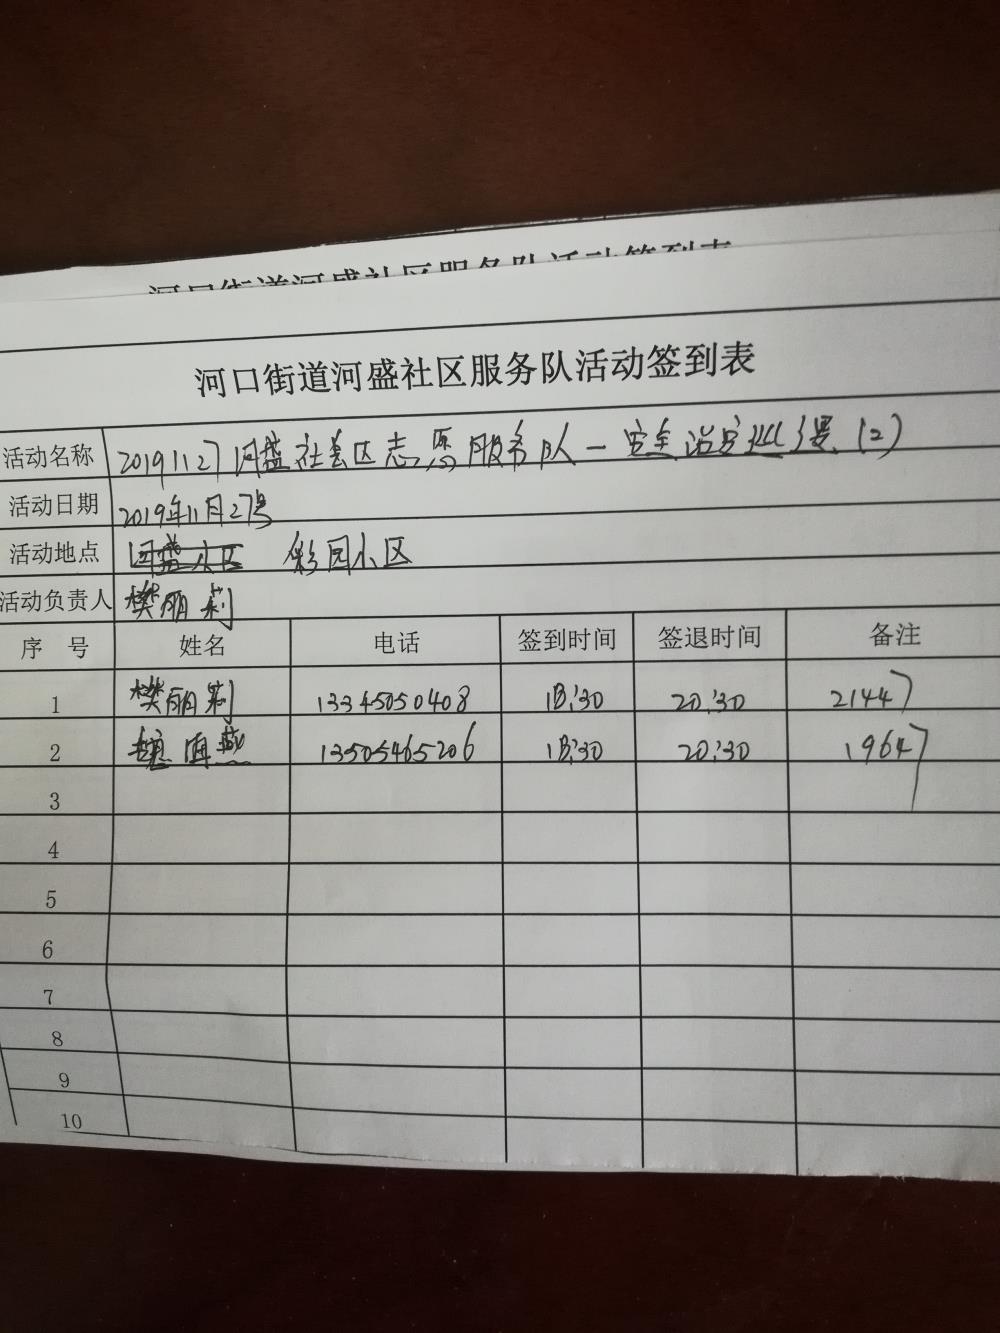 河口街道河盛社区服务队活动签到表
河口街道河盛社区服务队活动签到表
活动名称 20191127河盛社区志愿服务队一安全治安巡逻(2)
活动日期 2019年11月27号
活动地点 河盛小区 彩园小区
活动负责人 樊丽莉
序 号 姓名 电话 签到时间 签退时间 备注
1 樊丽莉 13345050408 18:30 20:30 21447
2 13505465206 18:30 20:30 19647
3
4
5
6
7
8
9
10